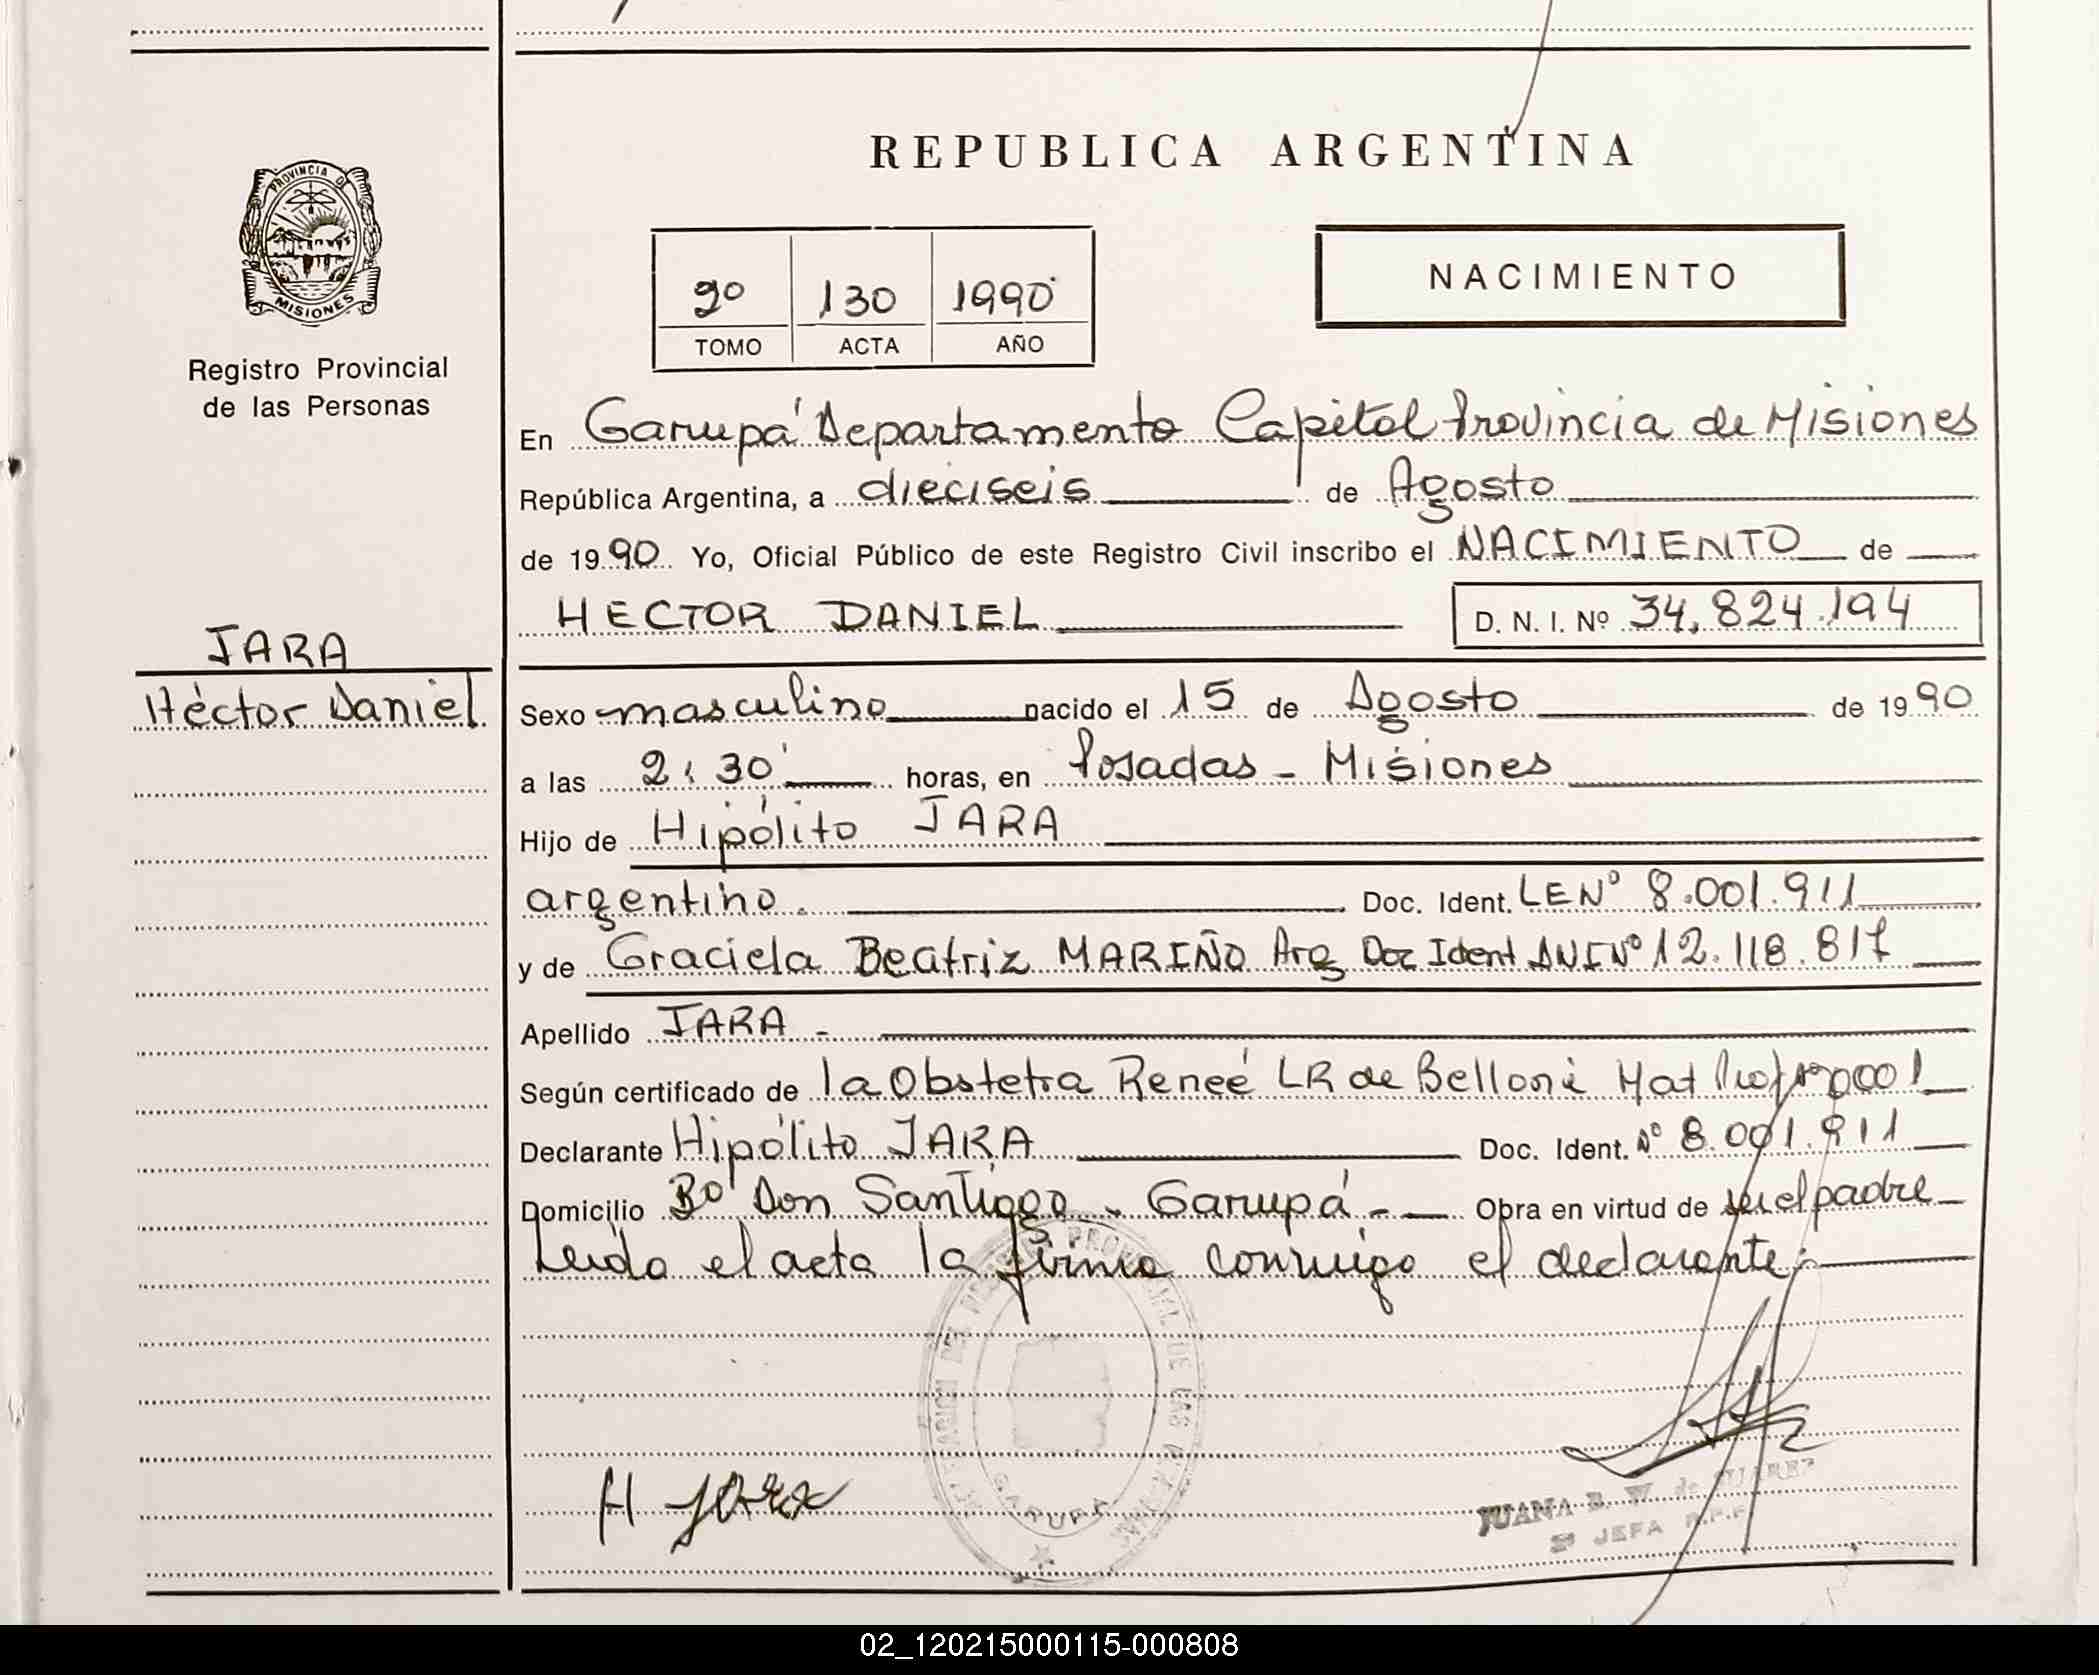 REPUBLICA ARGENTINA
PROVINCIA DE
MISIONES
Registro Provincial
de las Personas
2º 130 1990
TOMO ACTA AÑO
NACIMIENTO
En Garupá Departamento Capital Provincia de Misiones
República Argentina, a dieciseis de Agosto
de 1990 Yo, Oficial Público de este Registro Civil inscribo el NACIMIENTO de
HECTOR DANIEL D. N. I. Nº 34,824.194
JARA
Héctor Daniel
Sexo masculino nacido el 15 de Agosto de 1990
a las 2:30' horas, en Posadas - Misiones
Hijo de Hipólito JARA
argentino. Doc. Ident. LE Nº 8.001.911
y de Graciela Beatriz MARIÑO Arg Doc Ident DNI Nº 12.118.817
Apellido JARA -
Según certificado de la Obstetra Reneé LR de Belloni Mat Prof
Declarante Hipólito JARA Doc. Ident. Nº 8.001.911
Domicilio Bº Don Santiago - Garupá - Obra en virtud de ser el padre
Leida el acta la firma conmigo el declarante.-
H Jara
GARUPA
JUANA B. W. de SUAREZ
JEFA R.P.P.
02_120215000115-000808